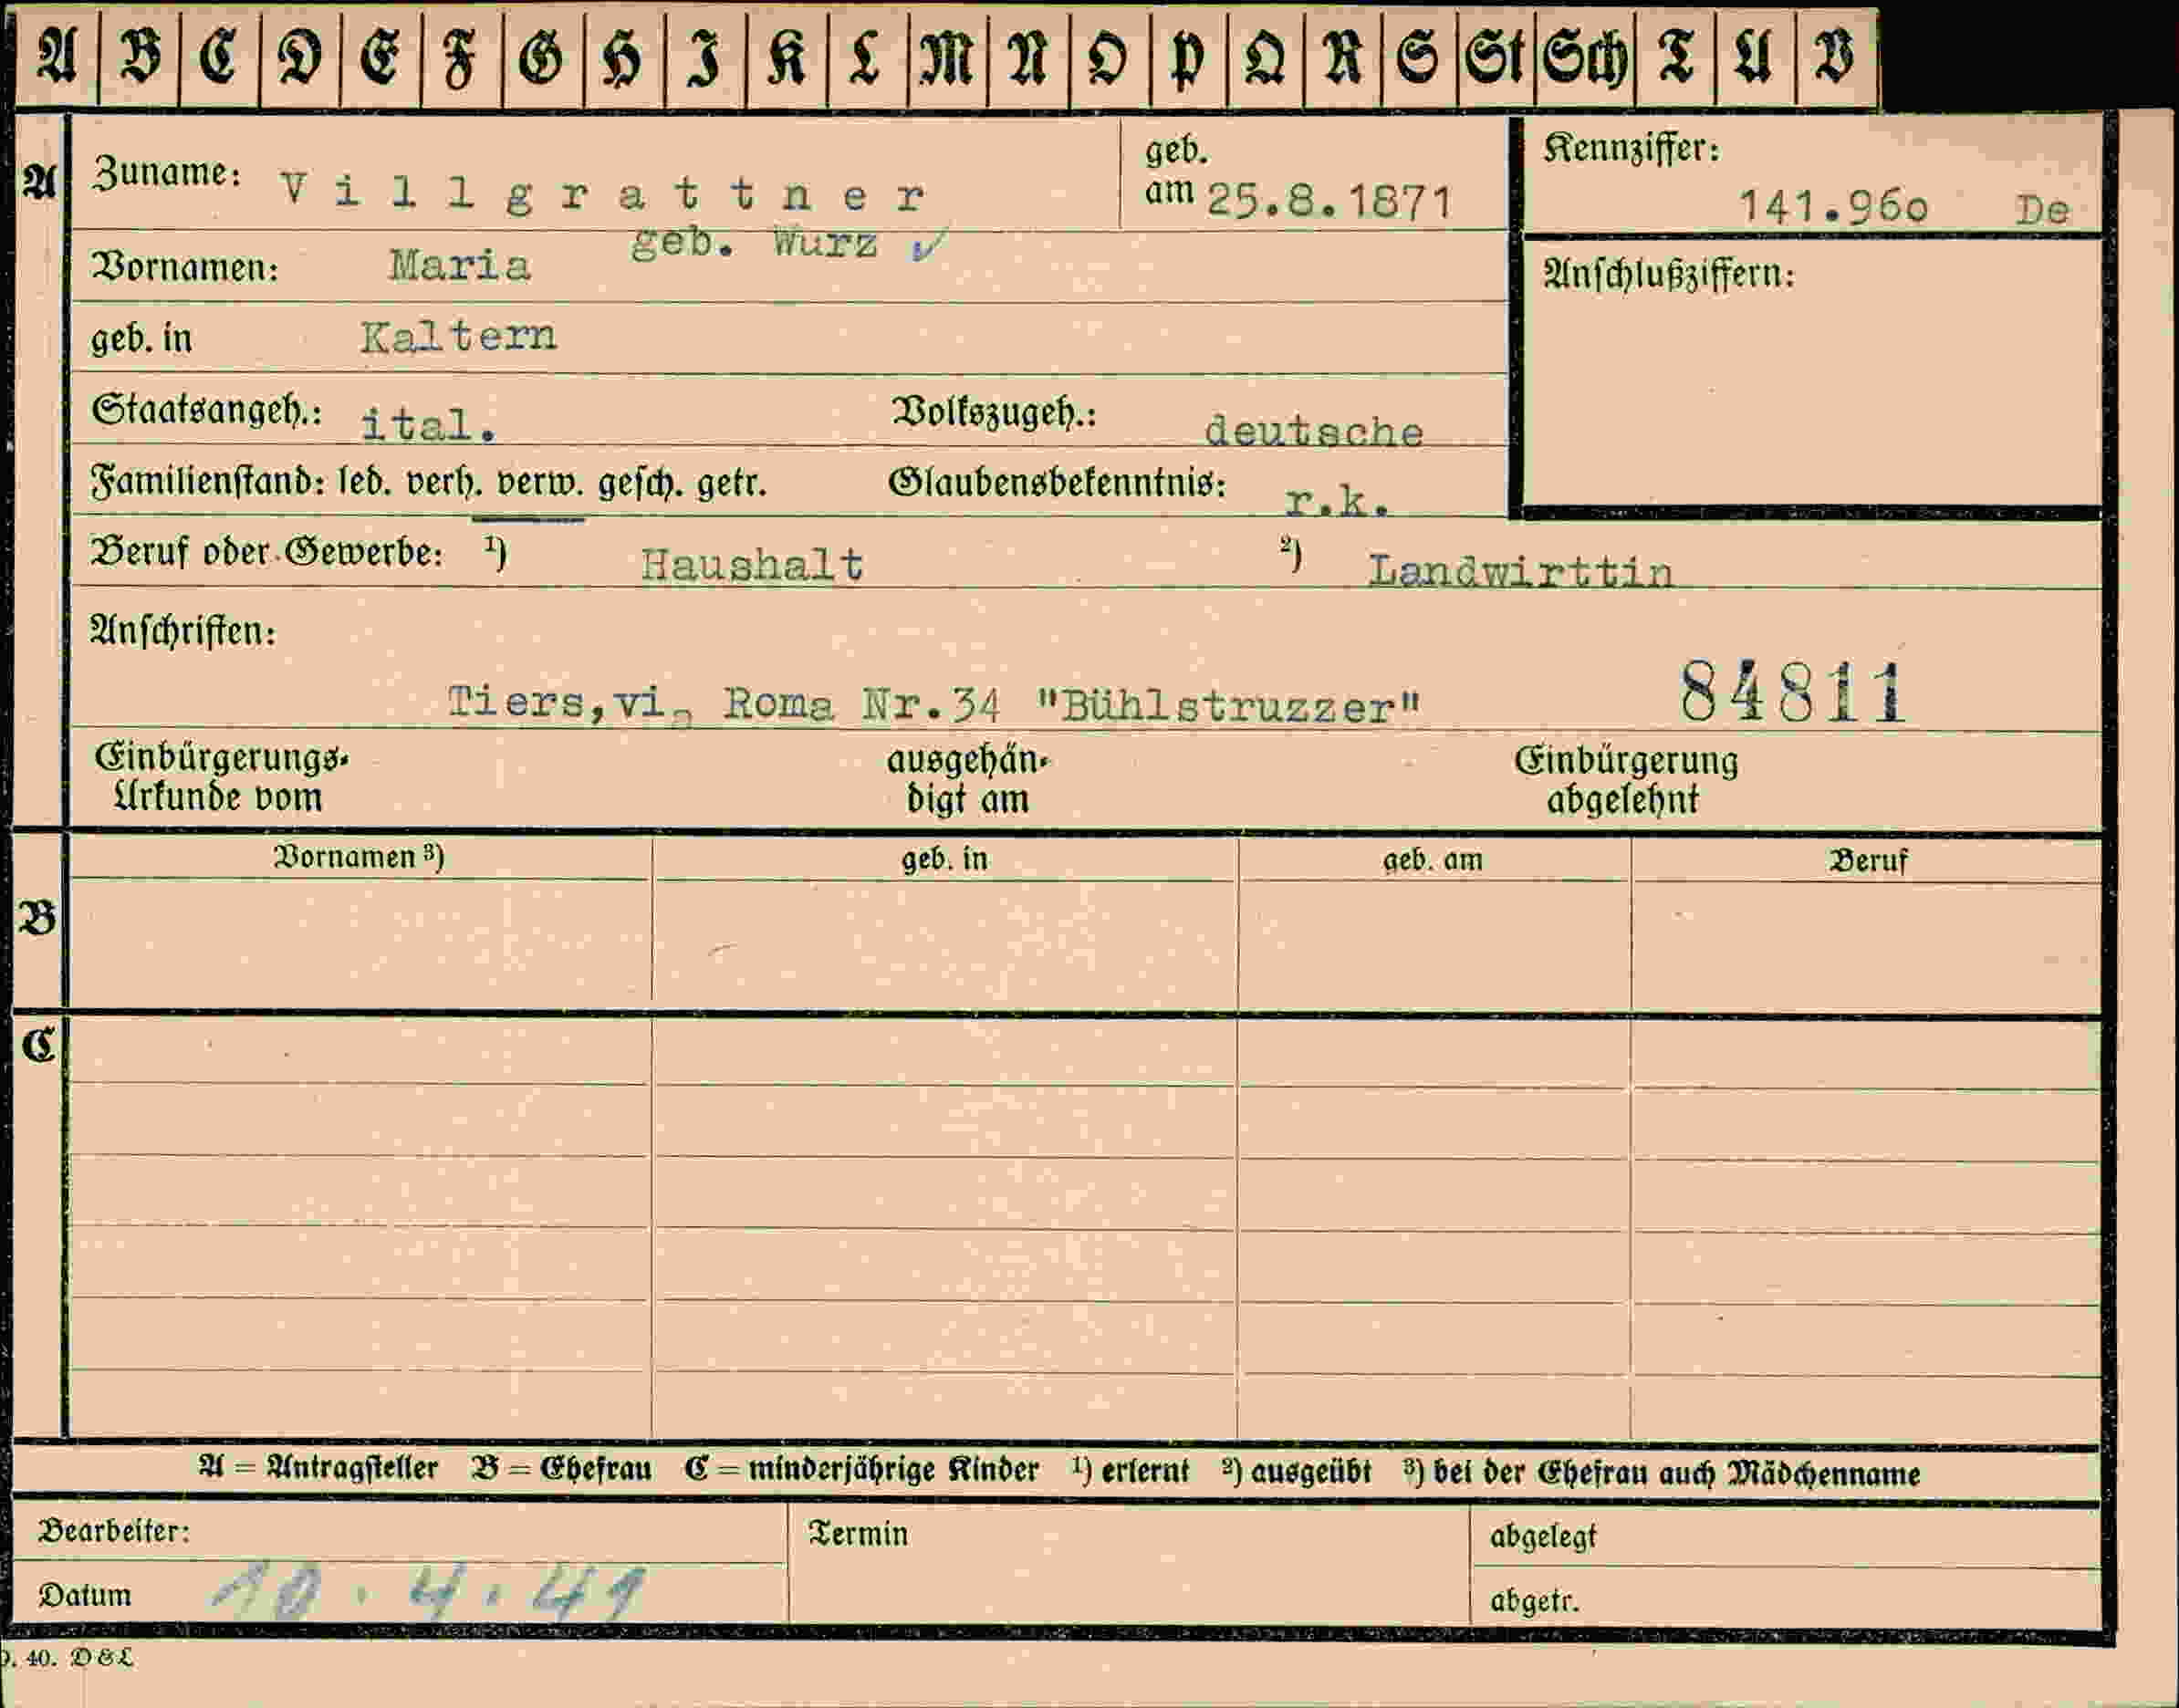 A B C D E F G H I K L M N O P Q R S St Sch T U V
A
Zuname: Villgrattner
geb. am 25.8.1871
Kennziffer:
141.96o De
geb. Wurz ✓
Vornamen: Maria
Anschlußziffern:
geb. in Kaltern
Staatsangeh.: ital. Volkszugeh.: deutsche
Familienstand: led. verh. verw. gesch. getr. Glaubensbekenntnis: r.k.
Beruf oder Gewerbe: 1) Haushalt 2) Landwirttin
Anschriften:
Tiers,via Roma Nr.34 "Bühlstruzzer" 84811
Einbürgerungs- ausgehän- Einbürgerung
Urkunde vom digt am abgelehnt
Vornamen 3) geb. in geb. am Beruf
B
C
A = Antragsteller B = Ehefrau C = minderjährige Kinder 1) erlernt 2) ausgeübt 3) bei der Ehefrau auch Mädchenname
Bearbeiter: Termin abgelegt
Datum 10.4.41 abgetr.
40. D&L